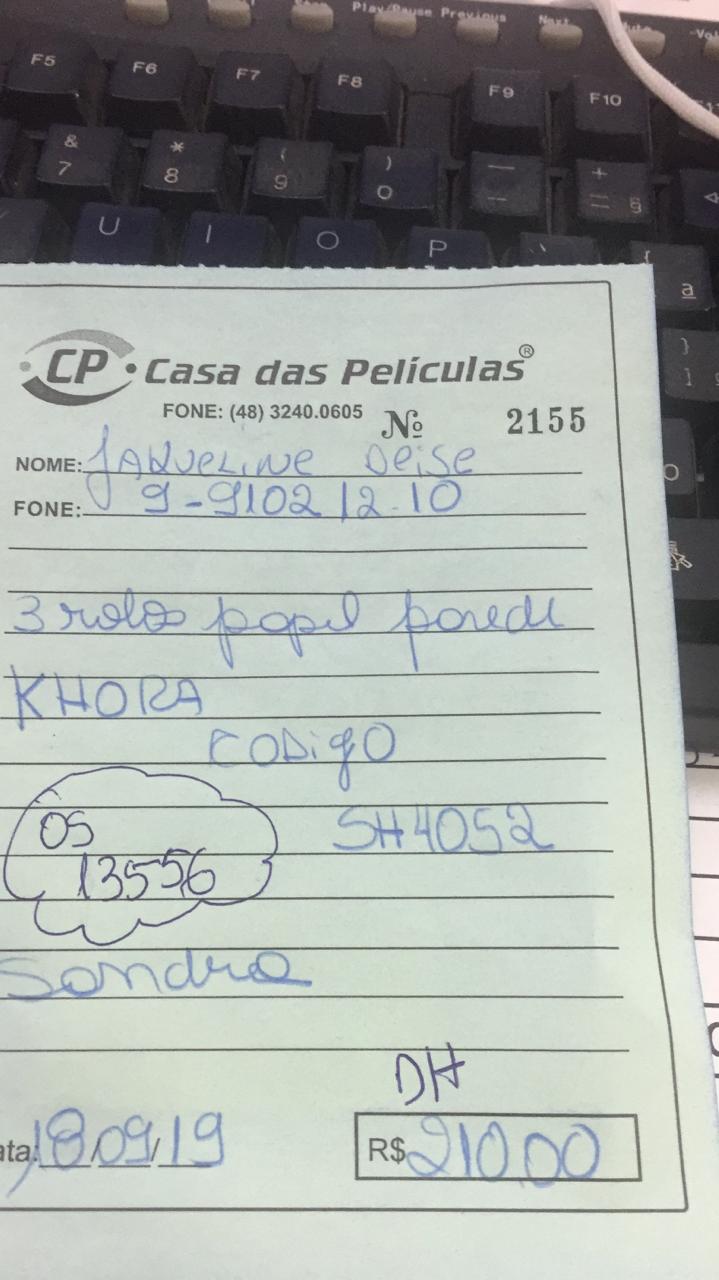 Play/Pause Previous Next Mute
F5 F6 F7 F8 F9 F10
& * ( ) +
7 8 9 0 = §
U I O P
{
a
}
]
CP Casa das Películas®
FONE: (48) 3240.0605 Nº 2155
NOME: JAQUELINE DEISE
FONE: 9-9102 12.10
3 rolos papel parede
KHORA
CODigO
OS SH4052
13556
Sandra
DH
ata: 18/09/19 R$ 210,00